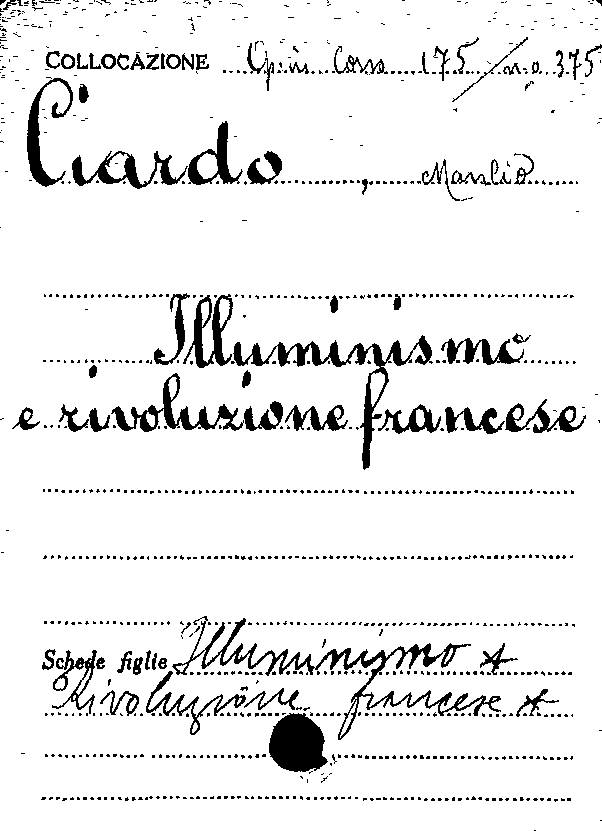 COLLOCAZIONE Op. in Corso 175/n.o 375
Ciardo, Manlio
Illuminismo
e rivoluzione francese
Schede figlie Illuminismo
Rivoluzione francese